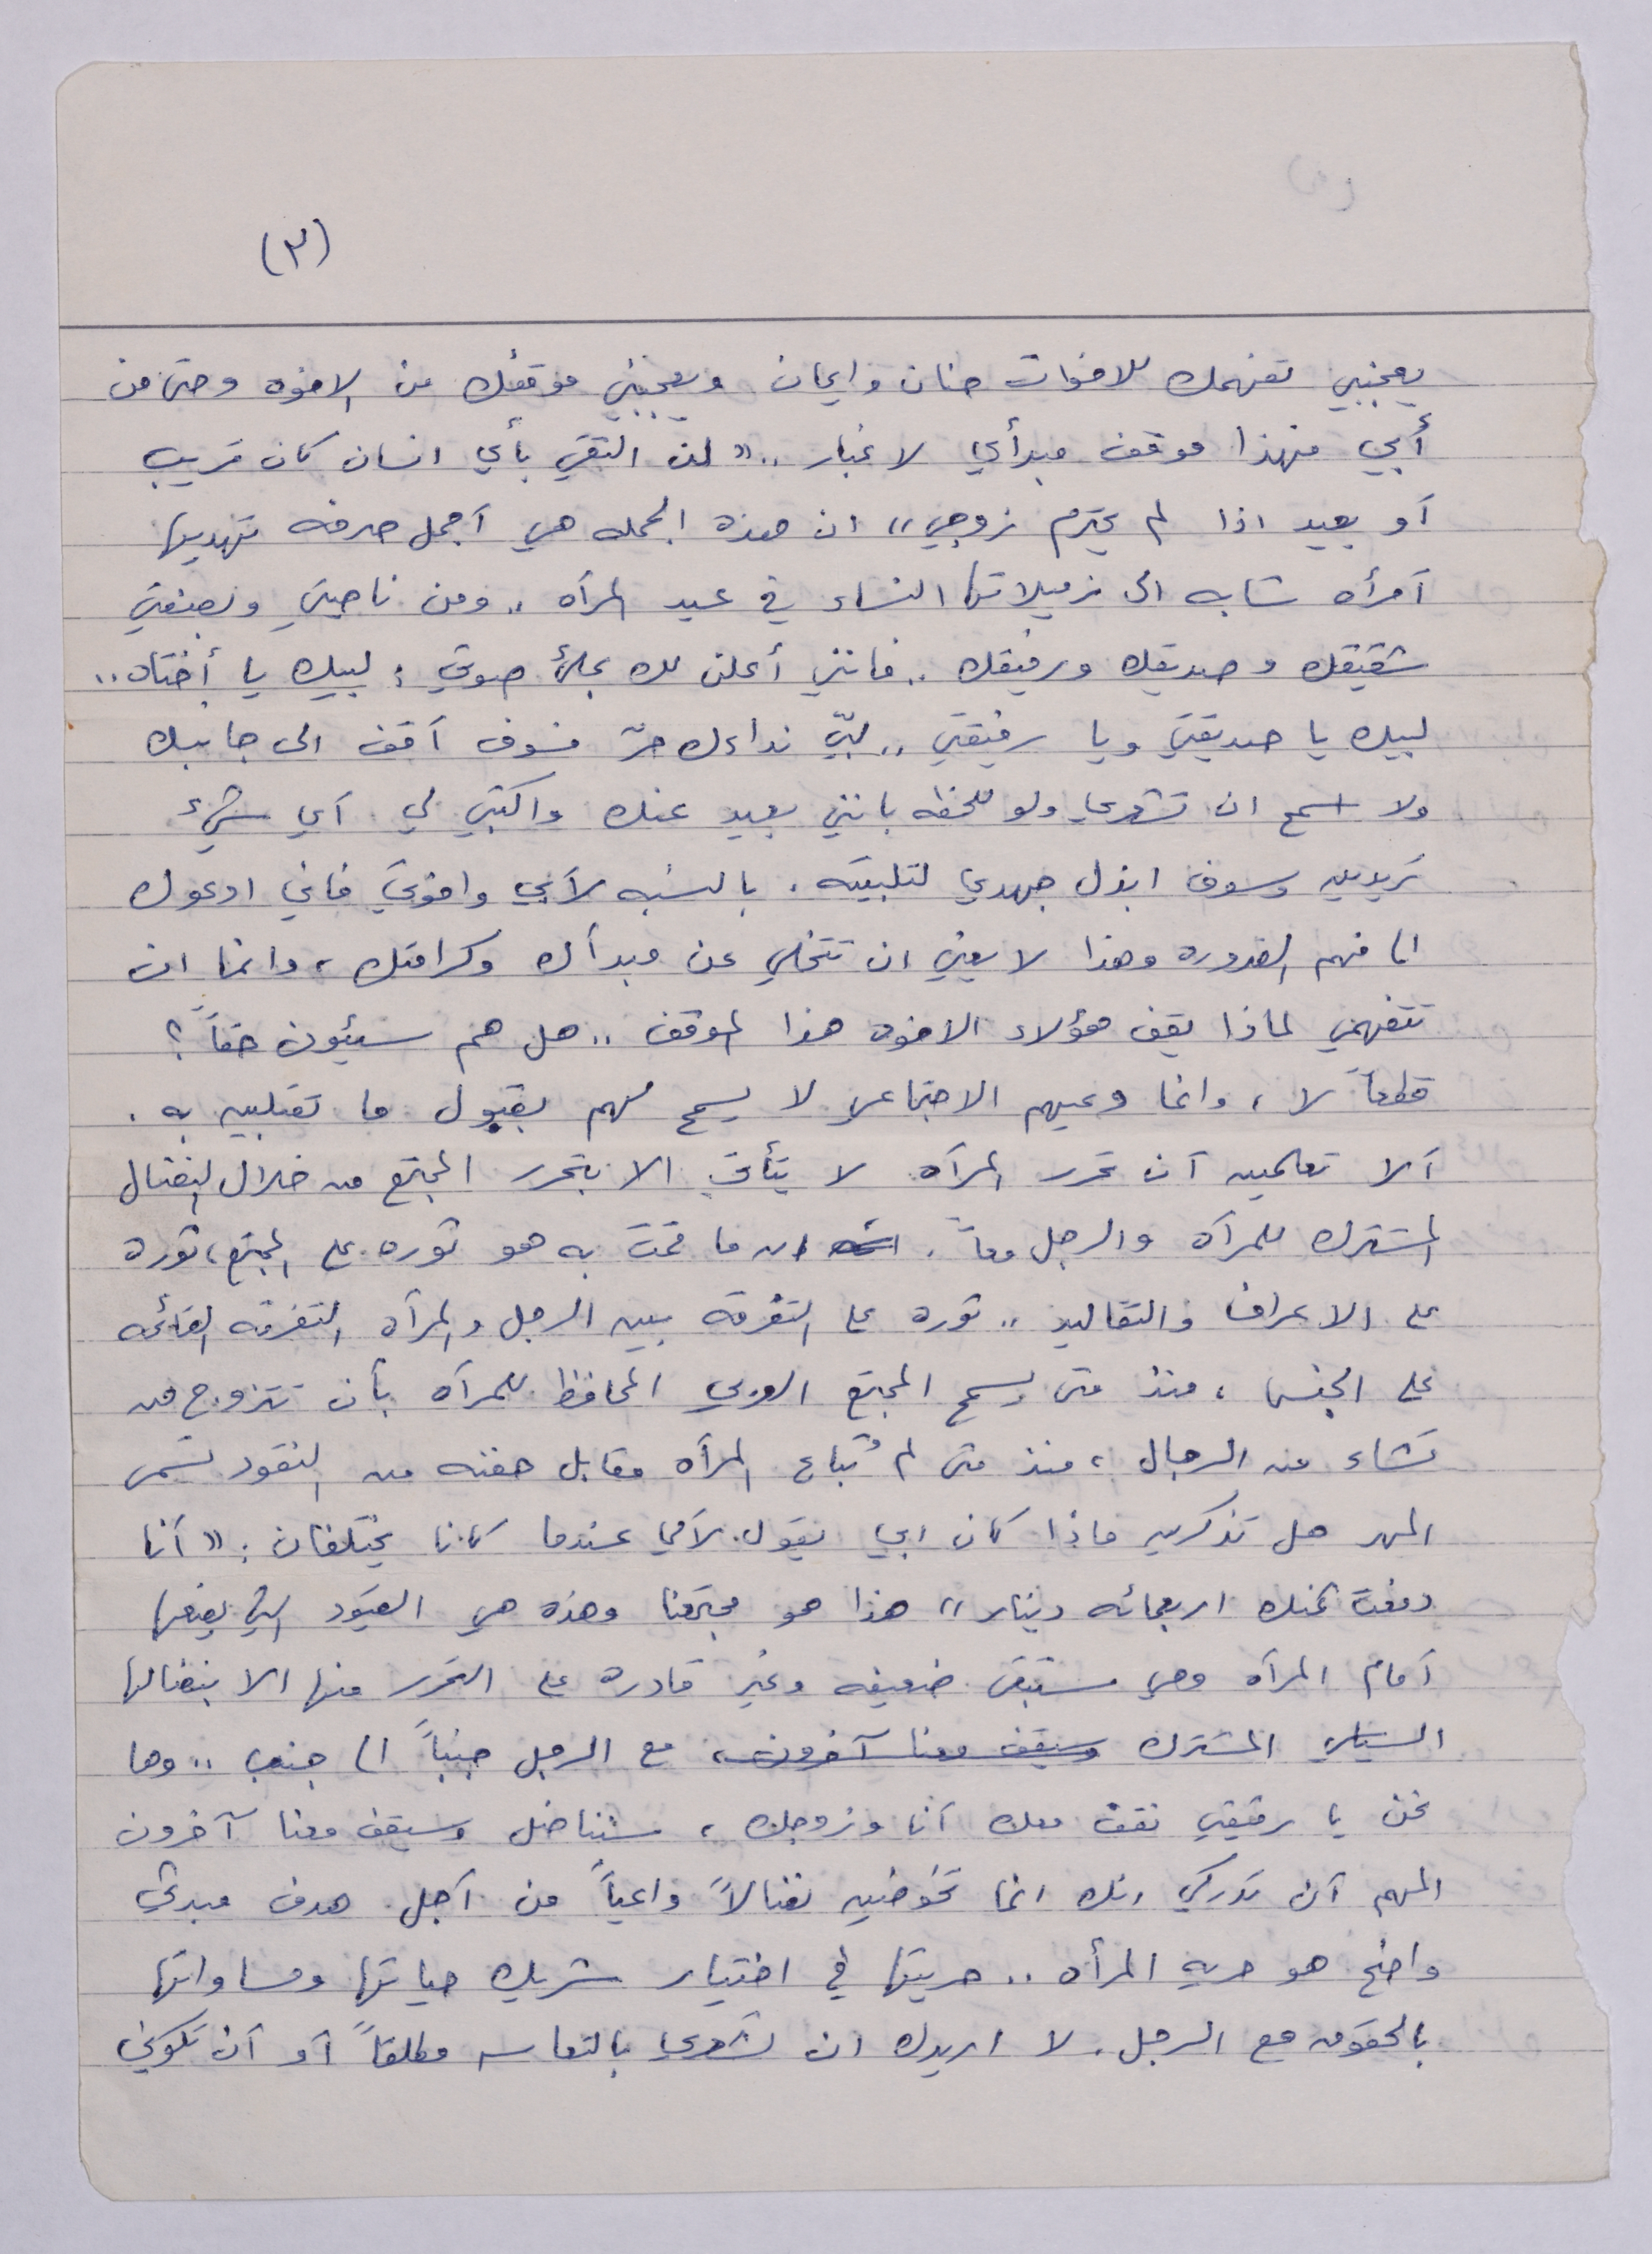 (٣)
يعجبني تفهمك للاخوات حنان وايمان ويعجبني موقفك من الاخوه وحتى من
أبي فهذا موقف مبدأي لا غبار .. « لن التقي بأي انسان كان قريب
أو بعيد اذا لم يحترم زوجي » ان هذه الجمله هي أجمل هدية تهديها
آمرأه شابه الى زميلاتها النساء في عيد المرآه .. ومن ناحيتي وبصفتي
شقيقك وصديقك ورفيقك .. فانني أعلن لك بملئ صوتي : لبيك يا أختاه ..
لبيك يا صديقتي ويا رفيقتي .. لبّي نداءك حرّ فسوف آقف الى جانبك
ولا اسمح ان تشعري ولو للحظه بانني بعيد عنك واكتبي لي آي شيء
تريدين وسوف ابذل جهدي لتلبيته . بالنسبه لآبي واخوتي فاني ادعوك
الى فهم الضروره وهذا لا يعني ان تتخلي عن مبدأك وكرامتك ، وانما ان
تتفهمي لماذا يقف هؤلاء الاخوه هذا الموقف .. هل هم سيئون حقاً ؟
قطعاً لا ، وانما وعيهم الاجتماعي لا يسمح لهم بقبول ما تقبلين به .
آلا تعلمين آن تحرر المرآه لا يتأتى الا بتحرر المجتمع من خلال النضال
المشترك للمرآه والرجل معاً . ان ما قمت به هو ثوره على المجتمع ، ثورة
على الاعراف والتقاليد .. ثوره على التفرقه بين الرجل والمرآه التفرقه القائمه
على الجنس ، منذ متى يسمح المجتمع العربي المحافظ للمرآه بأن تتزوج من
تشاء من الرجال ، منذ متى لم تُباع المرآه مقابل حفنه من النقود تسمى
المهر هل تذكرين ماذا كان ابي يقول لآمي عندما كانا يختلفان : « آنا
دفعت ثمنك اربعمائه دينار » هذا هو مجتمعنا وهذه هي القيود التي يضعها
آمام المرآه وهي ستبقى ضعيفه وغير قادره على التحرر منها الا بنضالها
السياسي المشترك وسيقف معنا آخرون ، مع الرجل جنباً الى جنب .. وها
نحن يا رفيقتي نقف معك آنا وزوجك ، سنناضل وسيقف معنا آخرون
المهم آن تدركي انك انما تخوضين نضالاً واعياً من آجل هدف مبدئي
واضح هو حريه المرأه .. حريتها في اختيار شريك حياتها ومساواتها
بالحقوق مع الرجل . لا اريدك ان تشعري بالتعاسه مطلقاً آو آن تكوني